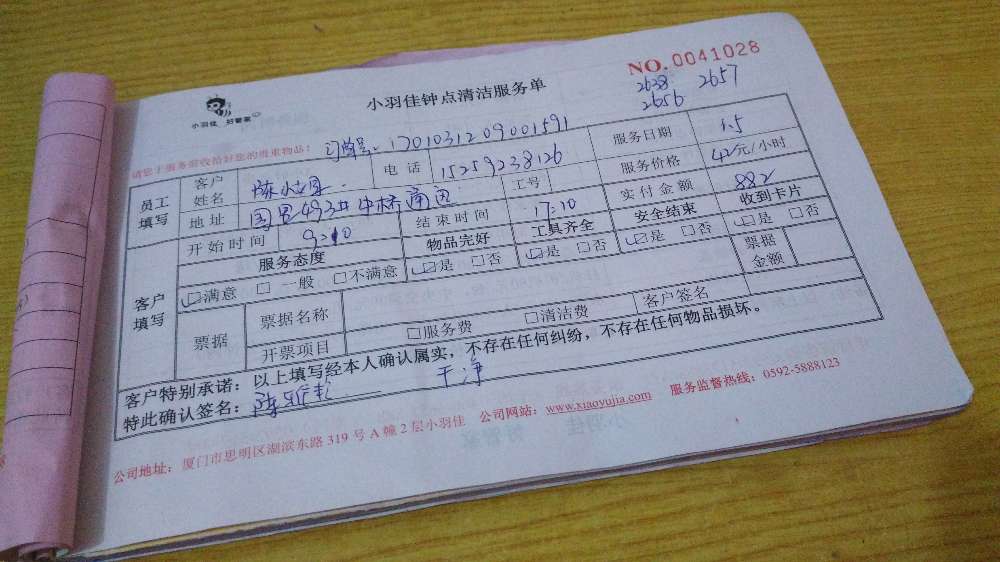 NO.0041028
小羽佳 好管家
小羽佳钟点清洁服务单
2638 2657
2656
请您于服务前收拾好您的贵重物品：
订单号：1701031209001591
员工填写 客户姓名 陈 电话 15259238126 服务日期 1.5
地址 工号 服务价格 42元/小时
开始时间 9:10 结束时间 17:10 实付金额 882
客户填写 服务态度 物品完好 工具齐全 安全结束 收到卡片
☑满意 □一般 □不满意 ☑是 □否 ☑是 □否 ☑是 □否 ☑是 □否
票据 票据名称 票据金额
开票项目 □服务费 □清洁费 客户签名
客户特别承诺：以上填写经本人确认属实，不存在任何纠纷，不存在任何物品损坏。
特此确认签名：陈 干净
公司地址：厦门市思明区湖滨东路319号A幢2层小羽佳 公司网站：www.xiaoyujia.com 服务监督热线：0592-5888123